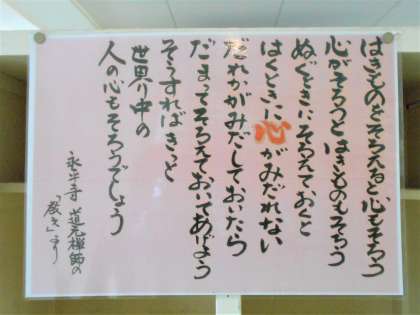 はきものをそろえると心もそろう
心がそろうとはきものもそろう
ぬぐときにそろえておくと
はくときに心がみだれない
だれかがみだしておいたら
だまってそろえておいてあげよう
そうすればきっと
世界中の
人の心もそろうでしょう
永平寺 道元禅師の
「教え」より